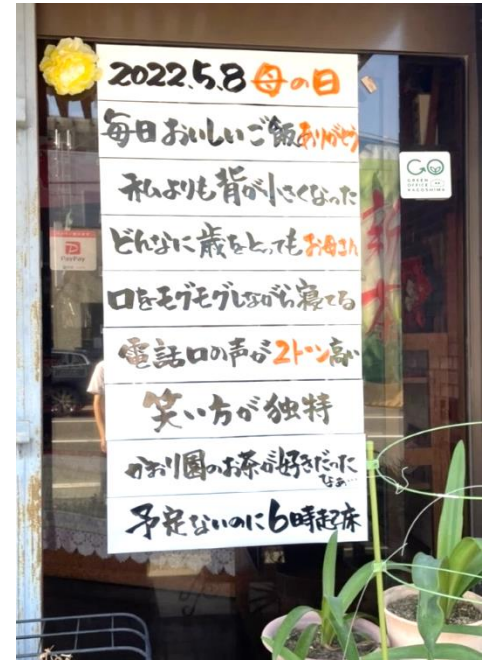 2022.5.8 母の日
毎日おいしいご飯ありがとう
私よりも背が小さくなった
どんなに歳をとってもお母さん
口をモグモグしながら寝てる
電話口の声が2トーン高い
笑い方が独特
かおり園のお茶が好きだった
なぁ…
予定ないのに6時起床
PayPay
GO
GREEN
OFFICE
KAGOSHIMA
新